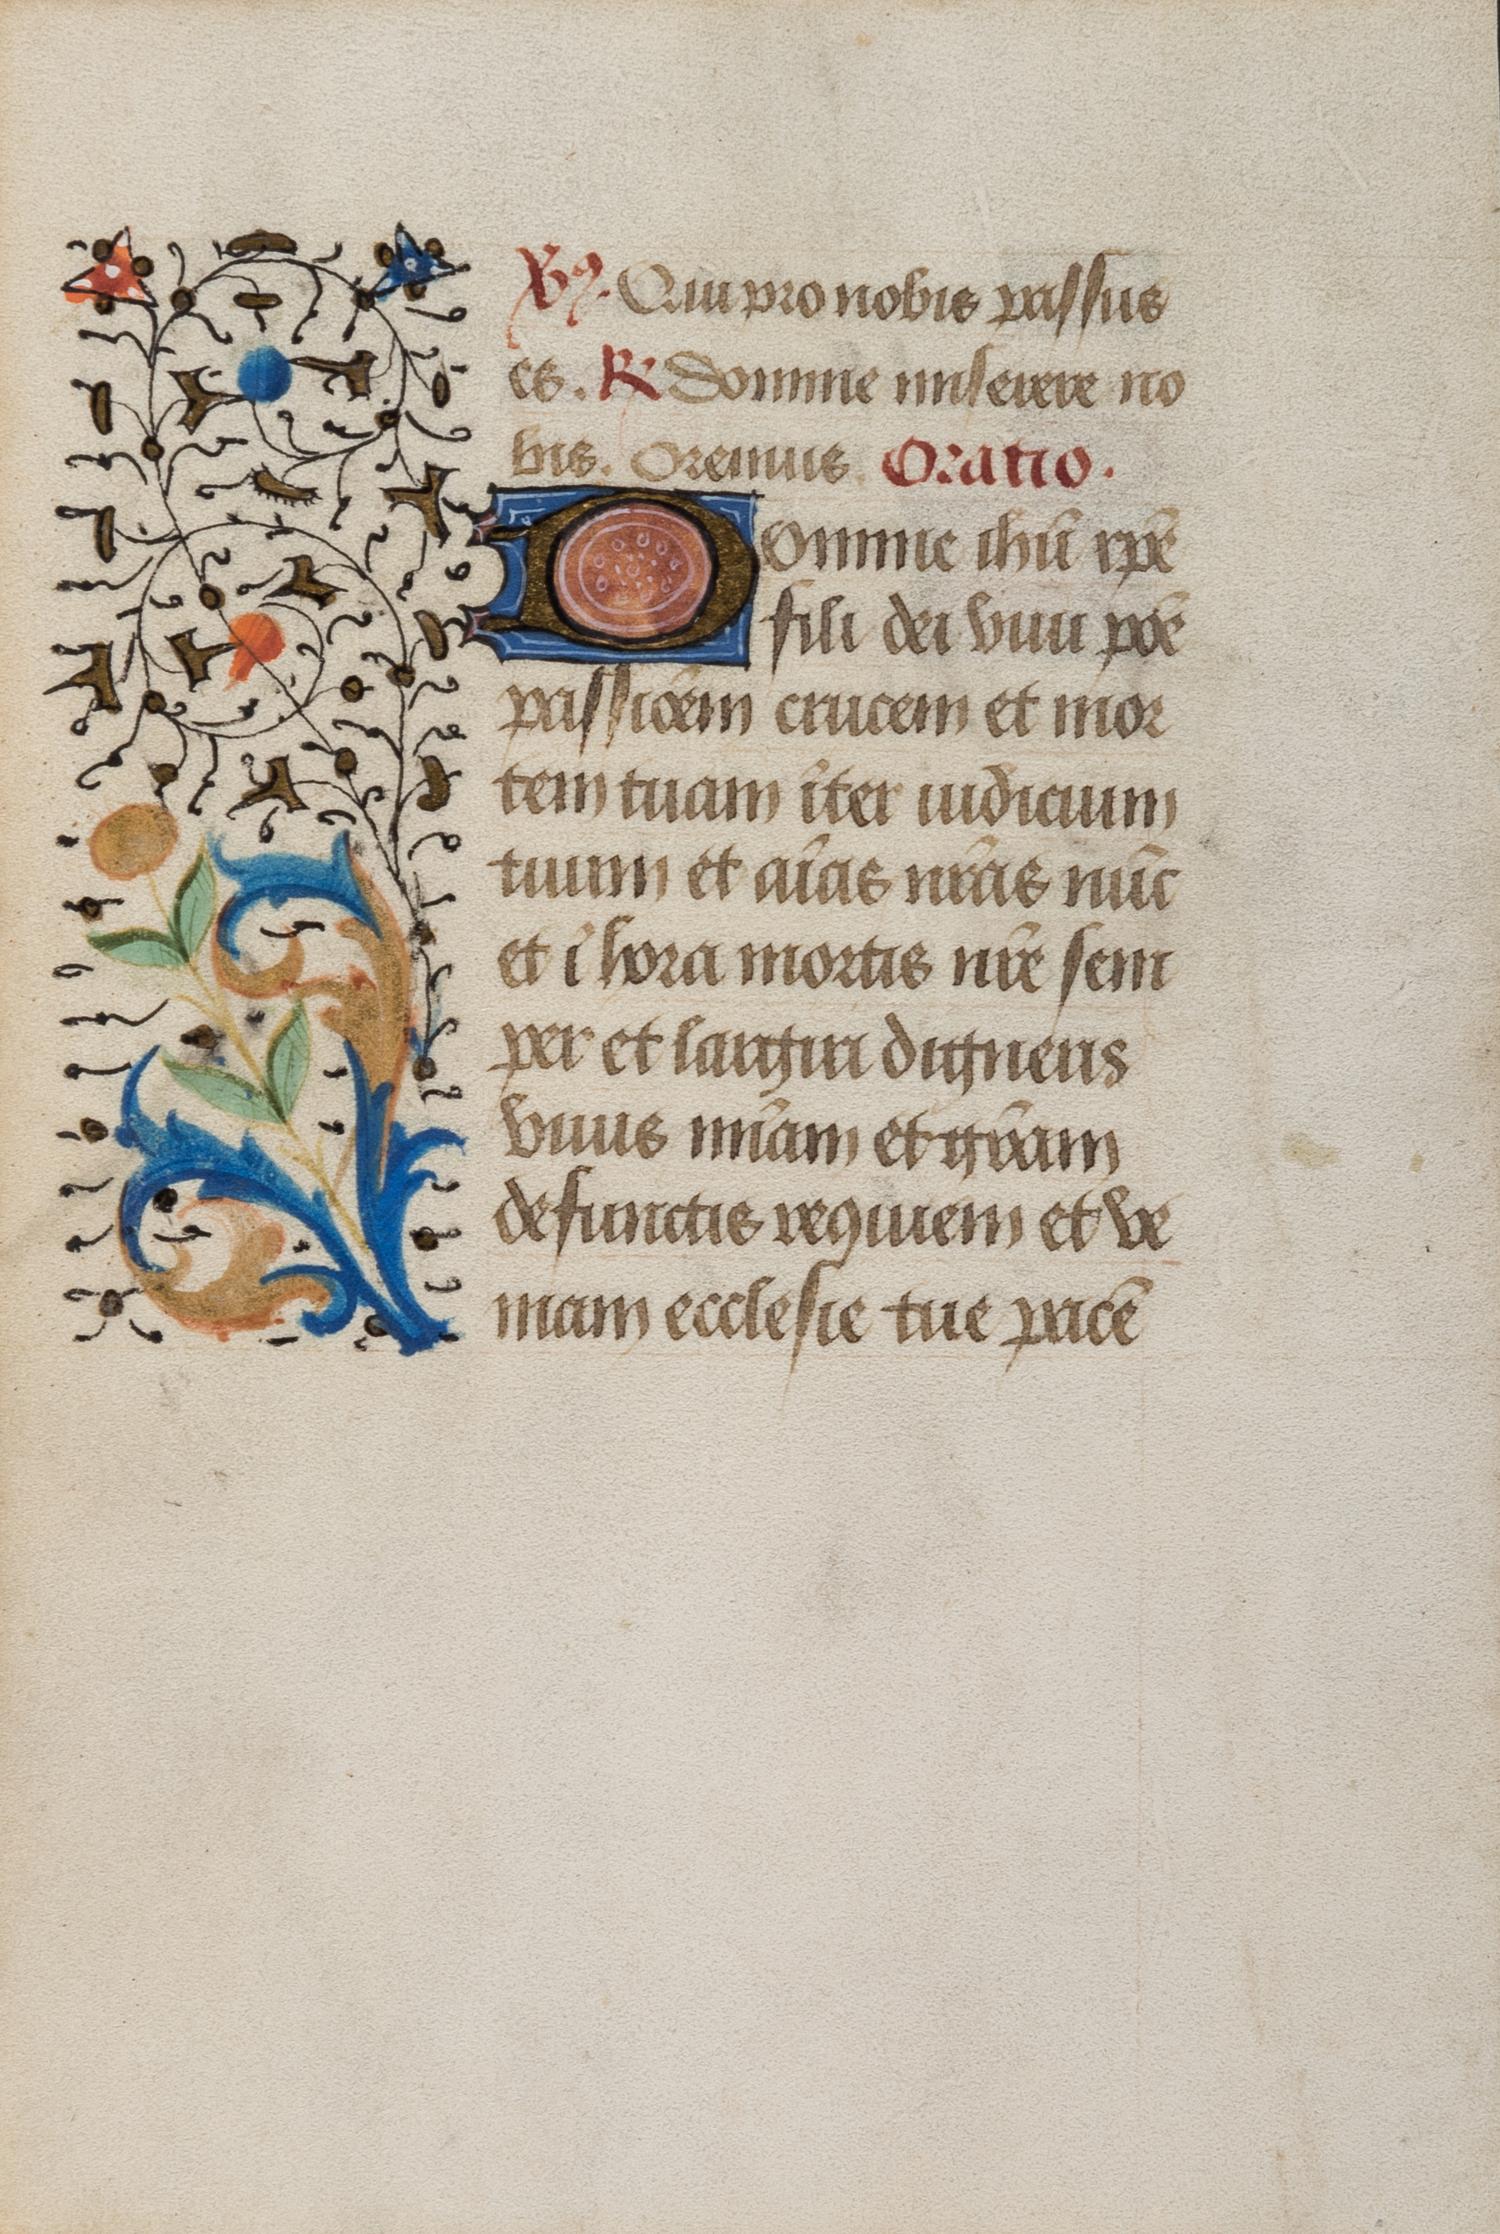 ℣. Qui pro nobis passus
es. ℟ Domine miserere no
bis. Oremus. Oratio.
Domine ihū xpē
fili dei viui poē
passioēm crucem et mor
tem tuam īter iudicium
tuum et aīas nrās nūc
et ī hora mortis nrē sem
per et largiri digneris
viuis mīam et grām
defunctis requiem et ve
niam ecclesie tue pacē